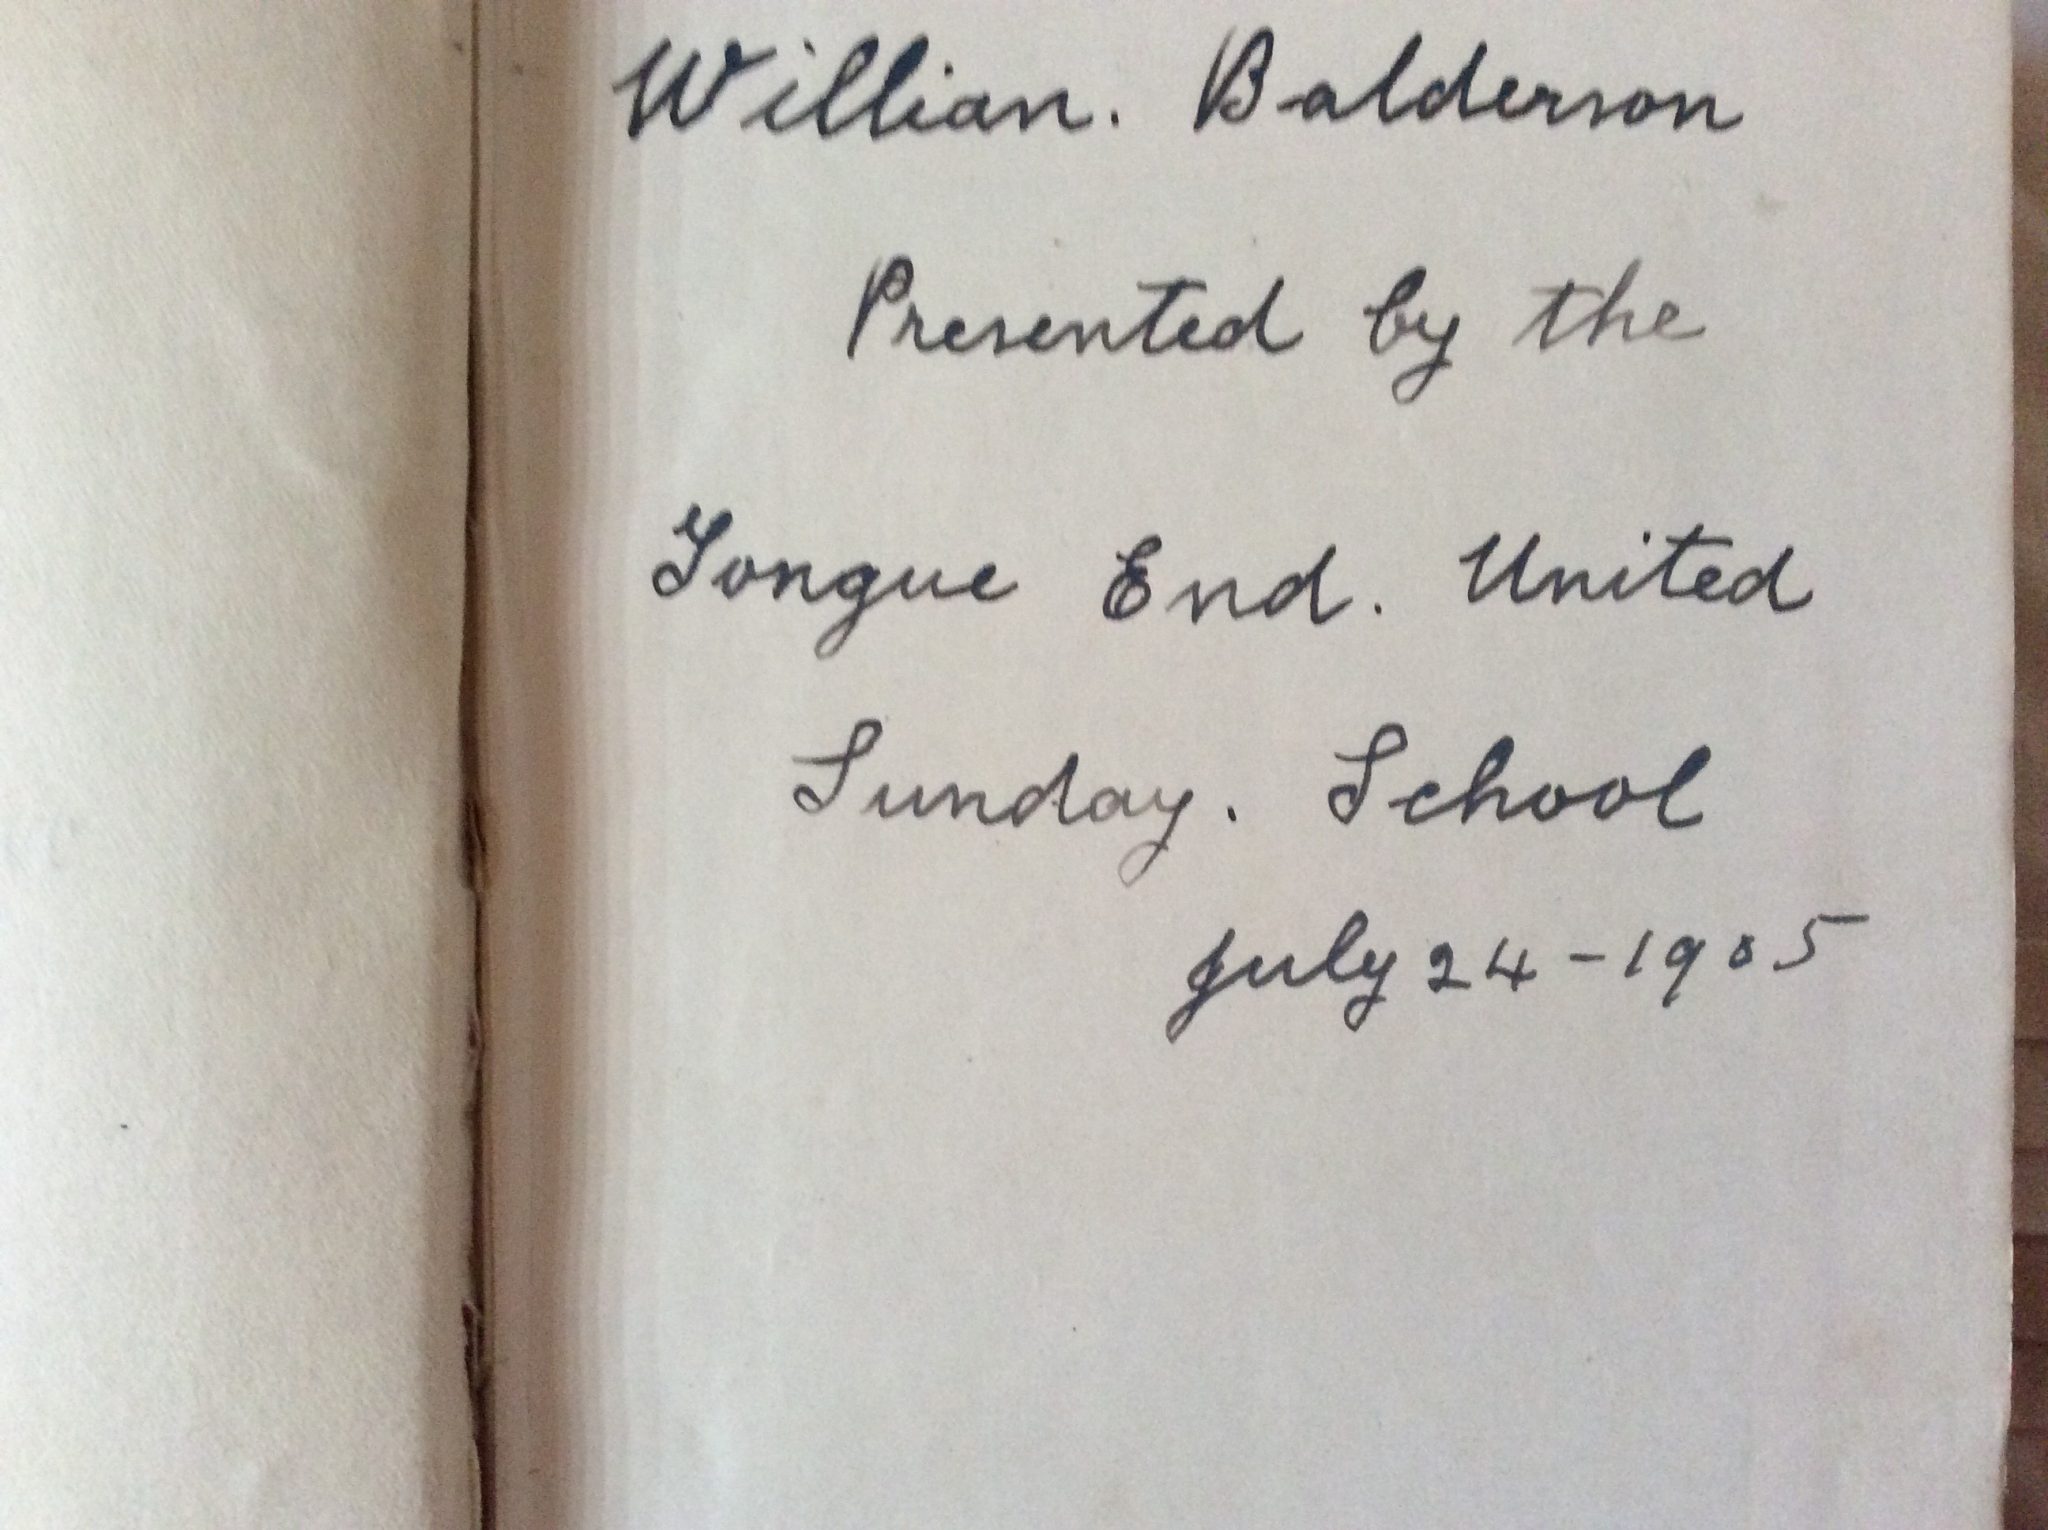 Willian. Balderson
Presented by the
Tongue End. United
Sunday. School
July 24 - 1905